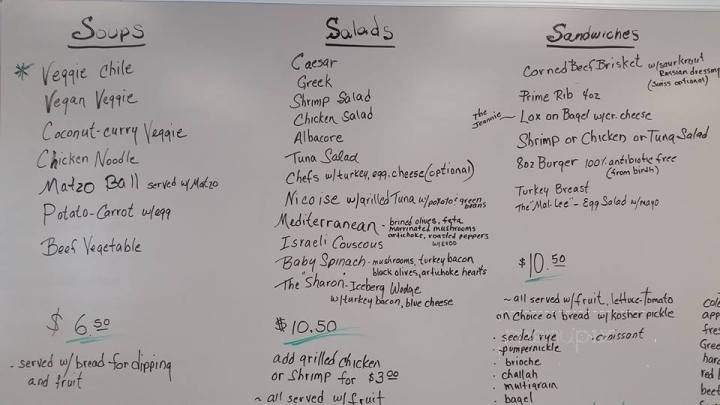 Soups
* Veggie Chile
Vegan Veggie
Coconut-curry Veggie
Chicken Noodle
Matzo Ball served w/Matzo
Potato-Carrot w/egg
Beef Vegetable
$ 6.50
. served w/bread-for dipping
and fruit
Salads
Caesar
Greek
Shrimp Salad
Chicken Salad
Albacore
Tuna Salad
Chefs w/turkey, egg, cheese (optional)
Nicoise w/grilled Tuna w/potato+green
beans
Mediterranean - brined olives, feta
marrinated mushrooms
artichoke, roasted peppers
w/EVOO
Israeli Couscous
Baby Spinach - mushrooms, turkey bacon
black olives, artichoke hearts
The "Sharon" - Iceberg Wedge
w/turkey bacon, blue cheese
$10.50
add grilled chicken
or Shrimp for $3.00
~ all served w/fruit
Sandwiches
Corned Beef Brisket w/saurkraut
Russian dressing
(Swiss optional)
Prime Rib 4oz
The Jeannie - Lox on Bagel w/cr. cheese
Shrimp or Chicken or Tuna Salad
8oz Burger 100% antibiotic free
(from birth)
Turkey Breast
The "Mal-Lee" - Egg Salad w/mayo
$10.50
~ all served w/fruit, lettuce-tomato
on choice of bread w/ kosher pickle
. seeded rye . croissant
. pumpernickle
. brioche
. challah
. multigrain
. bagel
app
fres
Gree
har
red
beet